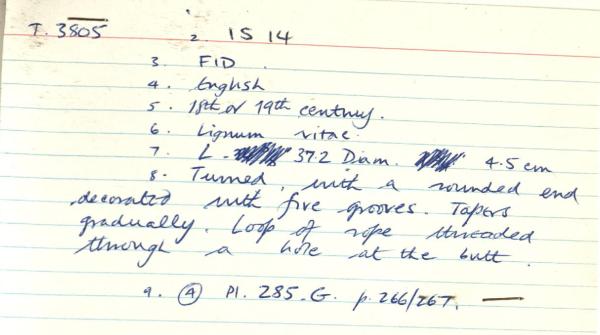 T. 3805 2. IS 14
3. FID.
4. English
5. 18th or 19th century.
6. Lignum vitae.
7. L. 37.2 Diam. 4.5 cm
8. Turned, with a rounded end
decorated with five grooves. Tapers
gradually. Loop of rope threaded
through a hole at the butt.
9. ④ Pl. 285.G. p. 266/267. —